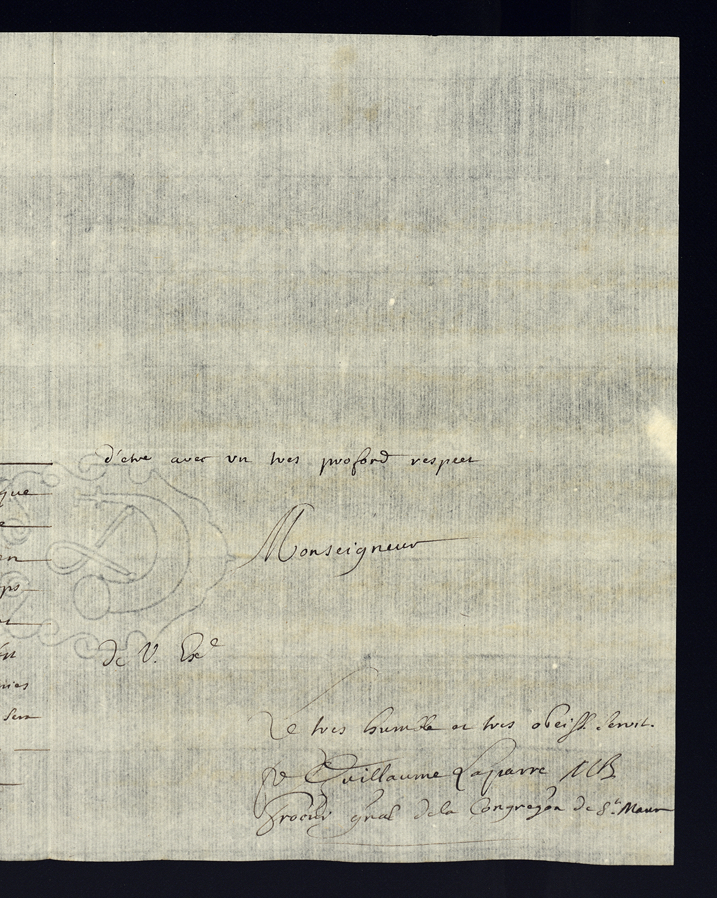 d'etre avec un tres profond respect
que
Monseigneur
de V. Exe
Le tres humble et tres obeiss. servit.
fr Guillaume Laparre MB
Procur gnal de la Congregaon de St. Maur